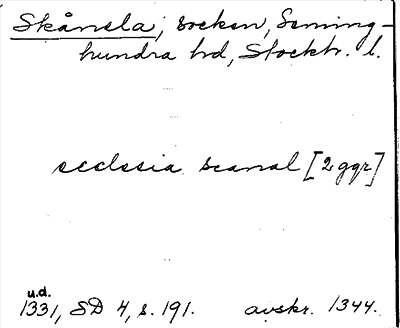 Skånela, socken, Seming-
hundra hd, Stockh. l.
ecclesia scanal [2 ggr]
u.d.
1331, SD 4, s. 191. avskr. 1344.